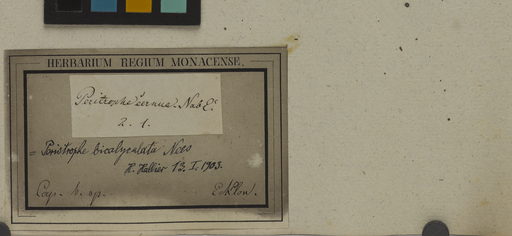 HERBARIUM REGIUM MONACENSE.
Peritrophe cernua. Nab E.
2. 1.
= Peristrophe bicalyculata Nees
H. Hallier 13. I. 1903.
Cap. b. sp. Ecklon.